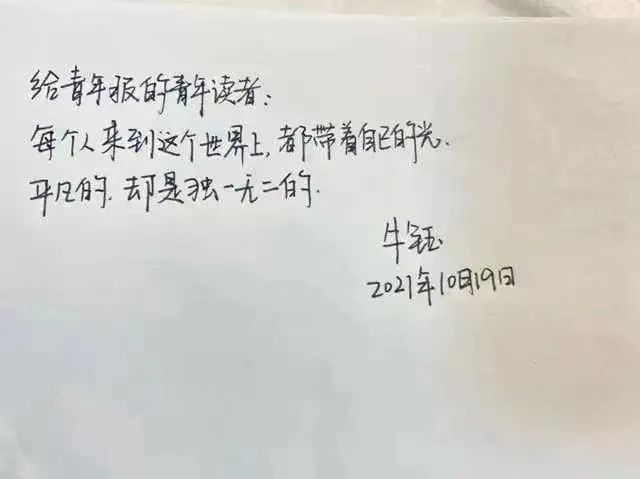 给青年报的青年读者:
每个人来到这个世界上,都带着自己的光.
平凡的.却是独一无二的.
牛钰
2021年10月19日